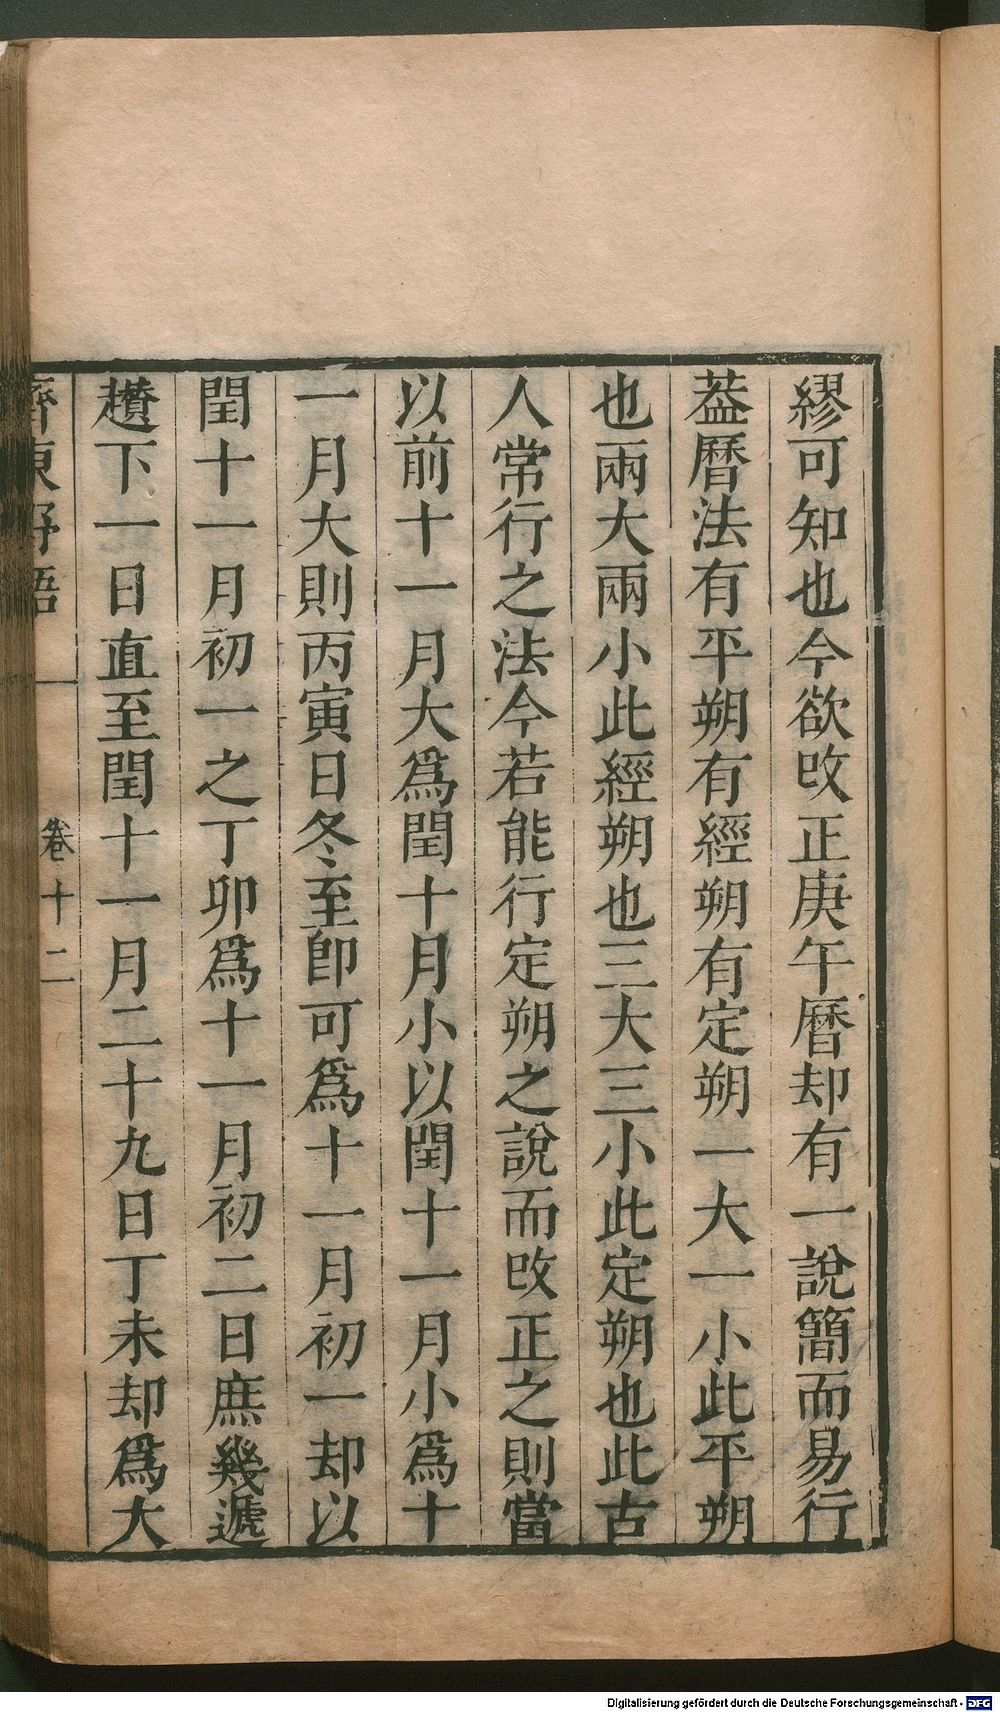 繆可知也今欲改正庚午曆却有一說簡而易行
葢曆法有平朔有經朔有定朔一大一小此平朔
也兩大兩小此經朔也三大三小此定朔也此古
人常行之法今若能行定朔之說而改正之則當
以前十一月大爲閏十月小以閏十一月小爲十
一月大則丙寅日冬至卽可爲十一月初一却以
閏十一月初一之丁卯爲十一月初二日庶幾遞
趲下一日直至閏十一月二十九日丁未却爲大
齊東野語 卷十二
Digitalisierung gefördert durch die Deutsche Forschungsgemeinschaft - DFG